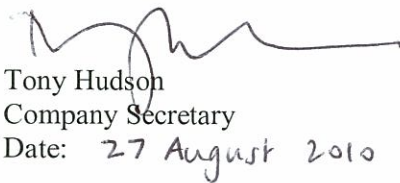 Tony Hudson
Company Secretary
Date: 27 August 2010